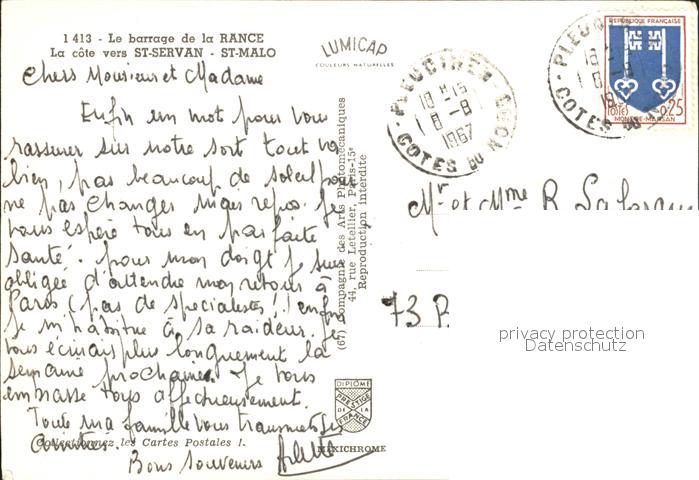 1 413 - Le barrage de la RANCE
La côte vers ST-SERVAN - ST-MALO
Chers Monsieur et Madame
Enfin un mot pour vous
rassurer sur notre sort tout va
bien, pas beaucoup de soleil pour
ne pas changer mais repos. Je
vous espère tous en parfaite
santé. pour mon doigt j suis
obligée d'attendre mon retour à
Paris (pas de specialistes!.) enfin
je m'habitue à sa raideur. Je
vous écrirais plus longuement la
semaine prochaine. Je vous
embrasse tous affectueusement.
Toute ma famille vous transmet ses
amitiés.
Bons souvenirs Arlette
Collectionnez les Cartes Postales !.
LUMICAP
COULEURS NATURELLES
(67) Compagnie des Arts Photomécaniques
44, rue Letellier, Paris-15e
Reproduction Interdite
DIPLOME
PRESTIGE
DE LA
FRANCE
MEXICHROME
PLEUDIHEN
18 H 15
8 - 8
1967
COTES DU NORD
REPUBLIQUE FRANÇAISE
POSTES 0,25
MONT-DE-MARSAN
PLEUDIHEN
COTES DU
Mr et Mme R.
73
privacy protection
Datenschutz